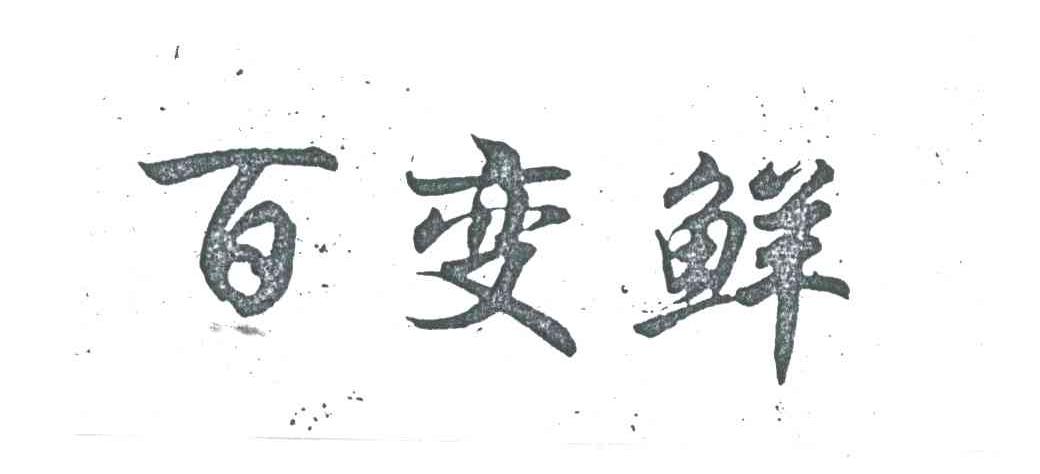 百变鲜